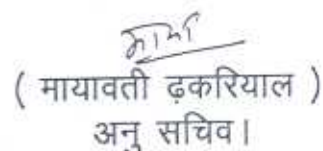 ( मायावती ढ़करियाल )
अनु सचिव।